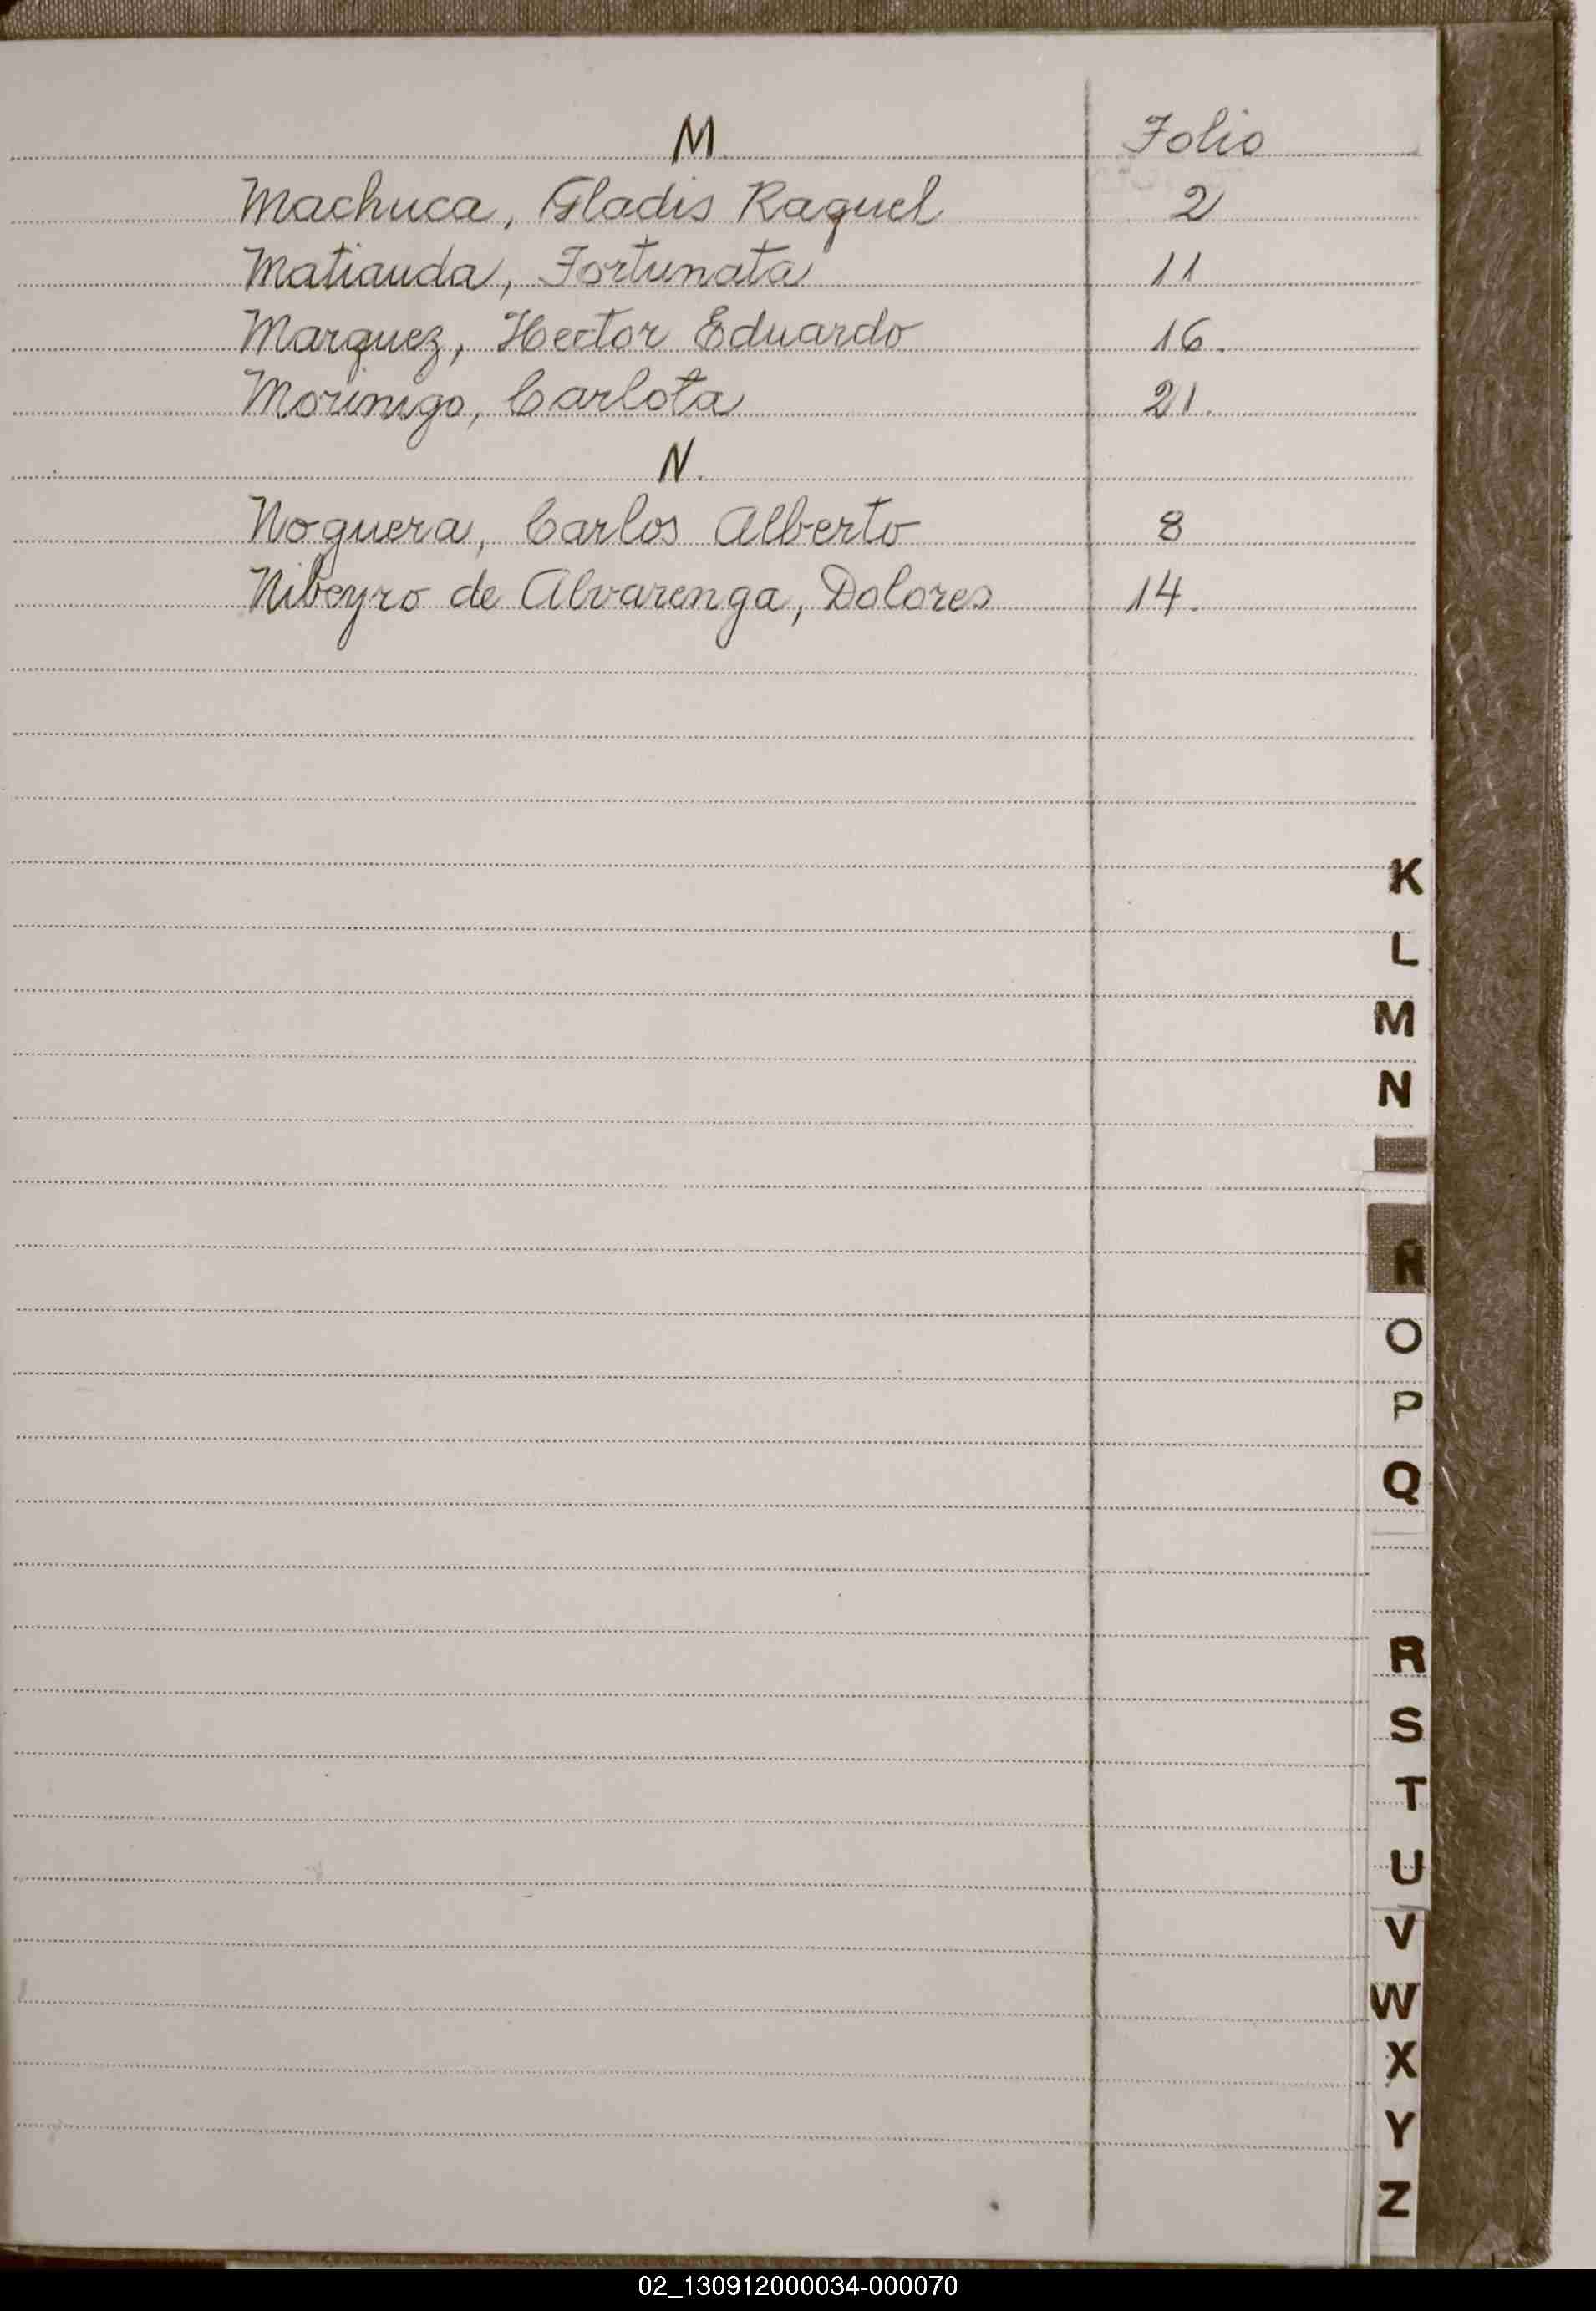 M. Folio
Machuca, Gladis Raquel 2
Matiauda, Fortunata 11
Marquez, Hector Eduardo 16.
Morinigo, Carlota 21.
N.
Noguera, Carlos Alberto 8
Nibeyro de Alvarenga, Dolores 14.
K
L
M
N
Ñ
O
P
Q
R
S
T
U
V
W
X
Y
Z
02_130912000034-000070